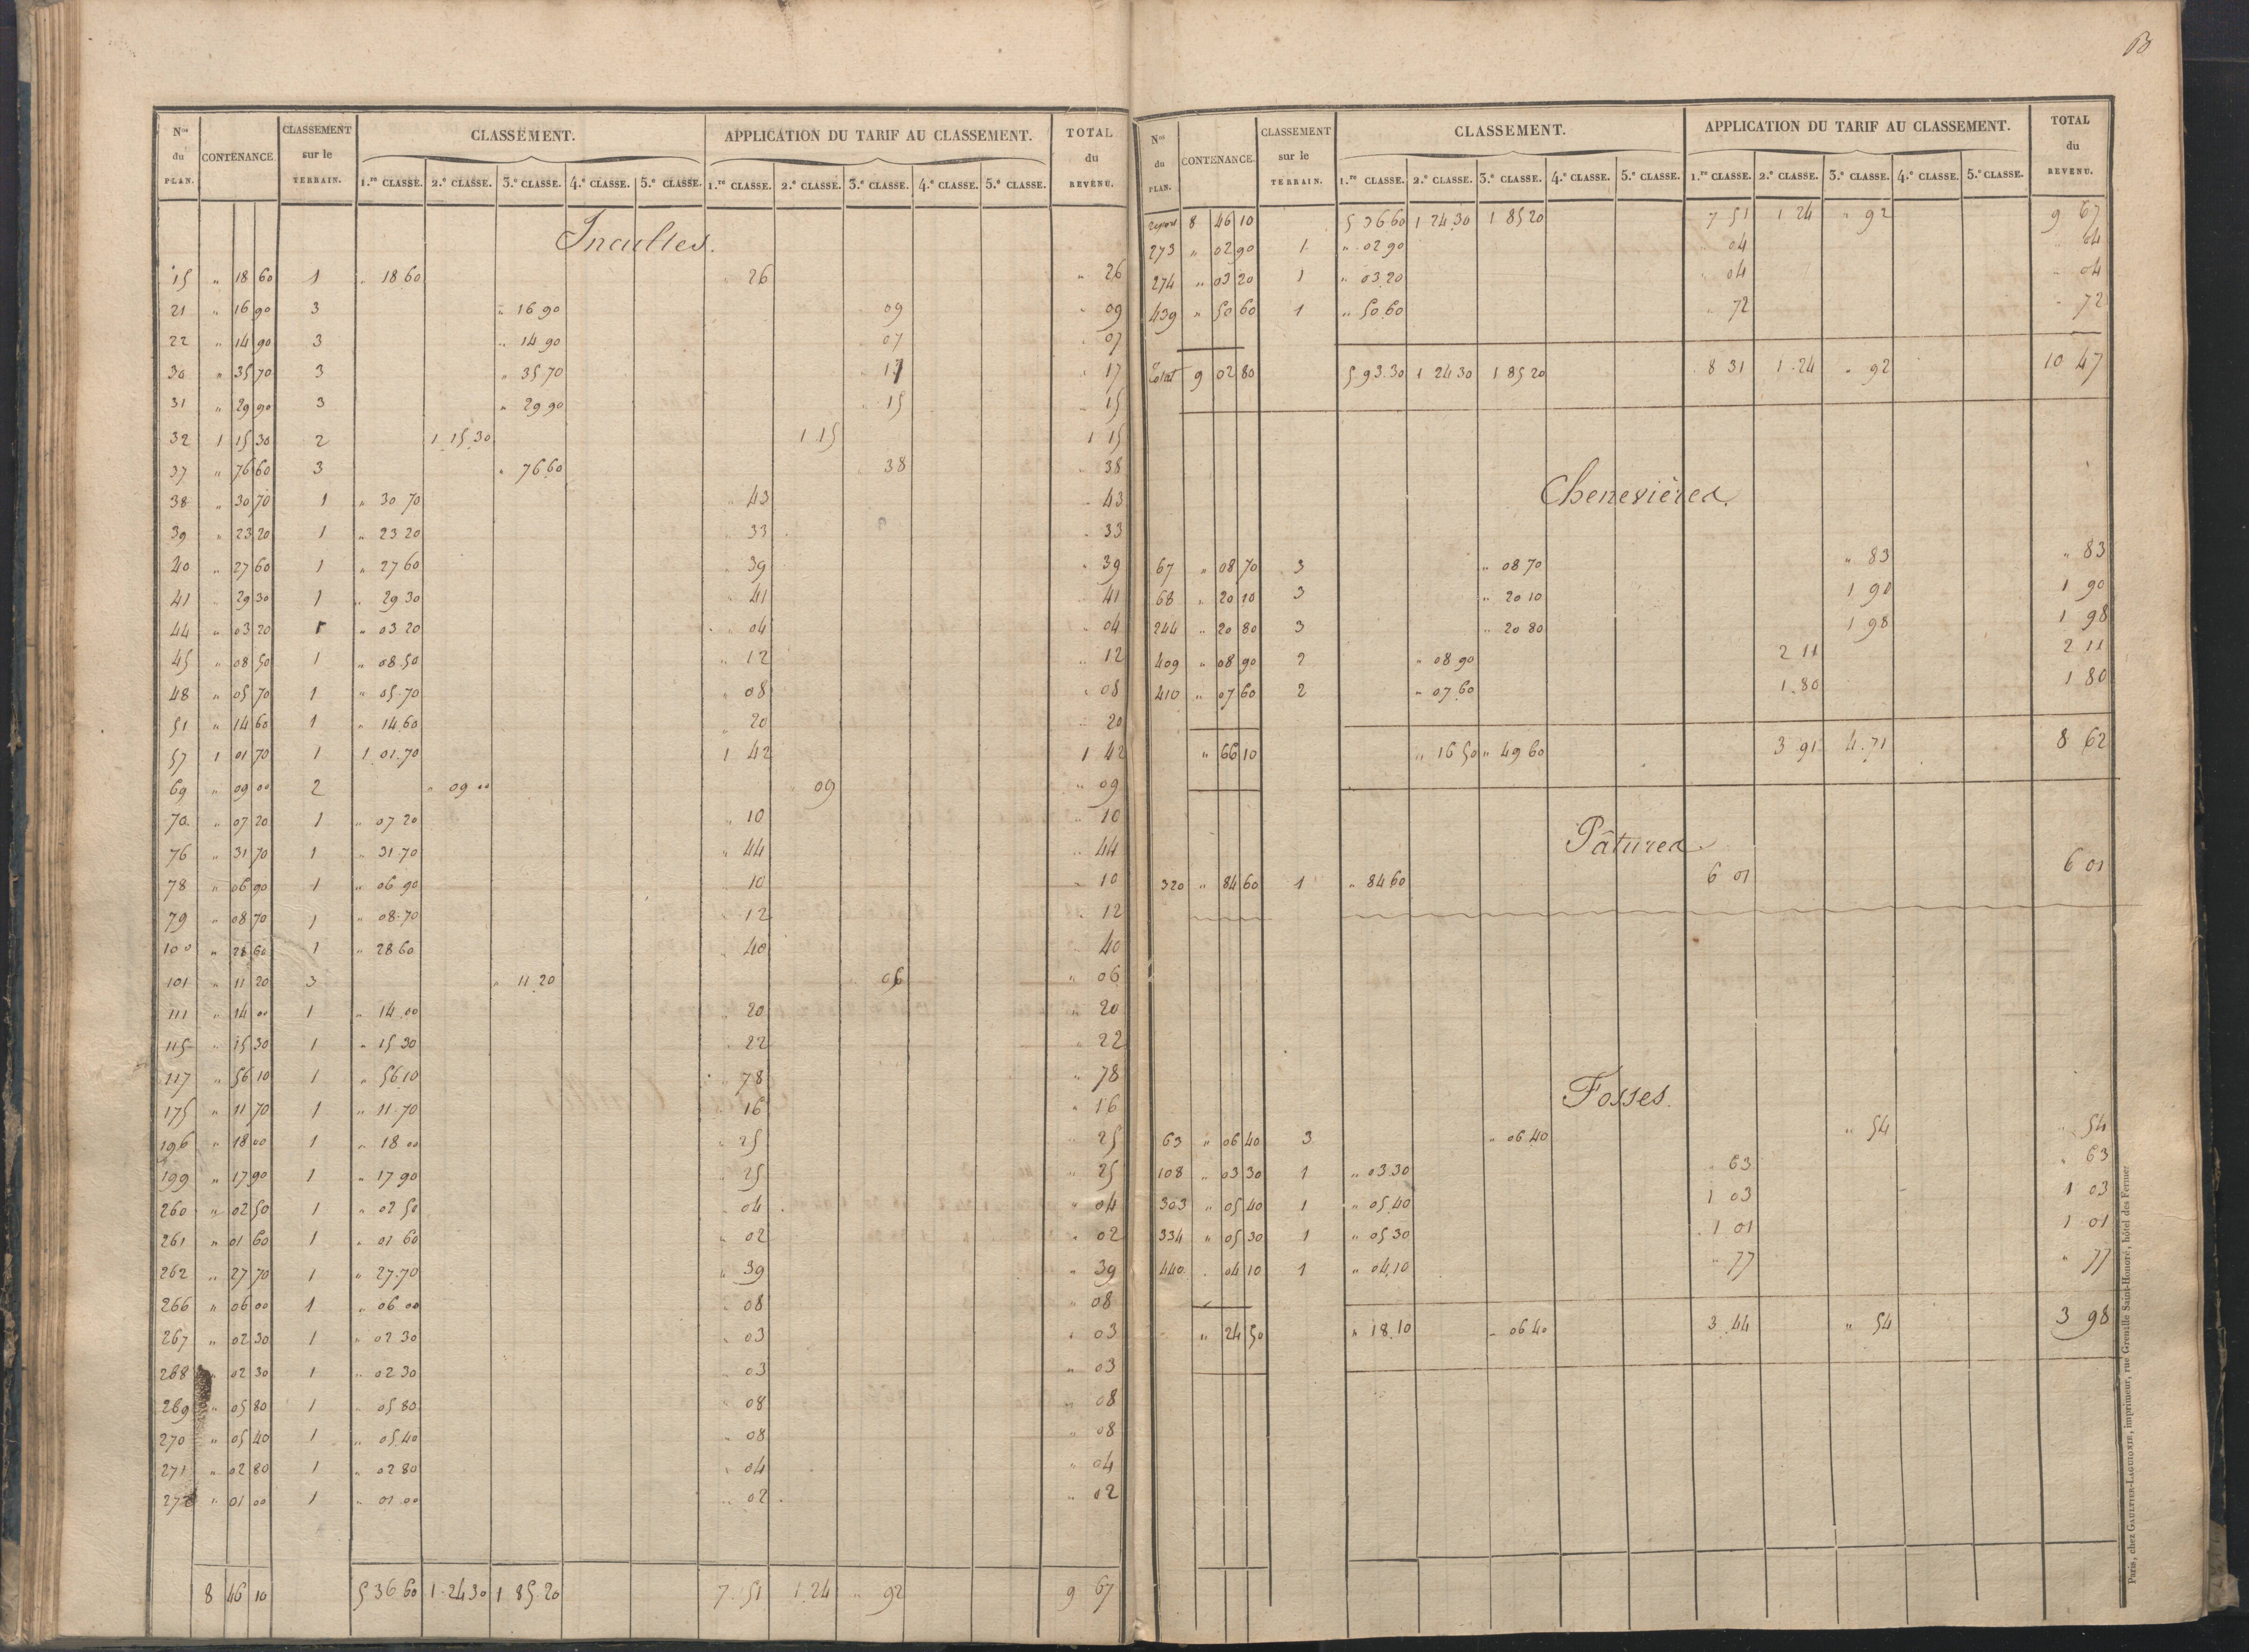 60
N.os du PLAN. CONTENANCE. CLASSEMENT sur le TERRAIN. CLASSEMENT. APPLICATION DU TARIF AU CLASSEMENT. TOTAL du REVENU.
1.re CLASSE. 2.e CLASSE. 3.e CLASSE. 4.e CLASSE. 5.e CLASSE. 1.re CLASSE. 2.e CLASSE. 3.e CLASSE. 4.e CLASSE. 5.e CLASSE.
Incultes.
15 " 18 60 1 " 18 60 " 26 " 26
21 " 16 90 3 " 16 90 " 09 " 09
22 " 14 90 3 " 14 90 " 07 " 07
30 " 35 70 3 " 35 70 " 17 " 17
31 " 29 90 3 " 29 90 " 15 " 15
32 1 15 30 2 1 15 30 1 15 1 15
37 " 76 60 3 " 76 60 " 38 " 38
38 " 30 70 1 " 30 70 " 43 " 43
39 " 23 20 1 " 23 20 " 33 " 33
40 " 27 60 1 " 27 60 " 39 " 39
41 " 29 30 1 " 29 30 " 41 " 41
44 " 03 20 1 " 03 20 " 04 " 04
45 " 08 50 1 " 08 50 " 12 " 12
48 " 05 70 1 " 05 70 " 08 " 08
51 " 14 60 1 " 14 60 " 20 " 20
57 1 01 70 1 1 01 70 1 42 1 42
69 " 09 00 2 " 09 00 " 09 " 09
70 " 07 20 1 " 07 20 " 10 " 10
76 " 31 70 1 " 31 70 " 44 " 44
78 " 06 90 1 " 06 90 " 10 " 10
79 " 08 70 1 " 08 70 " 12 " 12
100 " 28 60 1 " 28 60 " 40 " 40
101 " 11 20 3 " 11 20 " 06 " 06
111 " 14 00 1 " 14 00 " 20 " 20
115 " 15 30 1 " 15 30 " 22 " 22
117 " 56 10 1 " 56 10 " 78 " 78
175 " 11 70 1 " 11 70 " 16 " 16
196 " 18 00 1 " 18 00 " 25 " 25
199 " 17 90 1 " 17 90 " 25 " 25
260 " 02 50 1 " 02 50 " 04 " 04
261 " 01 60 1 " 01 60 " 02 " 02
262 " 27 70 1 " 27 70 " 39 " 39
266 " 06 00 1 " 06 00 " 08 " 08
267 " 02 30 1 " 02 30 " 03 " 03
268 " 02 30 1 " 02 30 " 03 " 03
269 " 05 80 1 " 05 80 " 08 " 08
270 " 05 40 1 " 05 40 " 08 " 08
271 " 02 80 1 " 02 80 " 04 " 04
272 " 01 00 1 " 01 00 " 02 " 02
8 46 10 5 36 60 1 24 30 1 85 20 7 51 1 24 " 92 9 67
N.os du PLAN. CONTENANCE. CLASSEMENT sur le TERRAIN. CLASSEMENT. APPLICATION DU TARIF AU CLASSEMENT. TOTAL du REVENU.
1.re CLASSE. 2.e CLASSE. 3.e CLASSE. 4.e CLASSE. 5.e CLASSE. 1.re CLASSE. 2.e CLASSE. 3.e CLASSE. 4.e CLASSE. 5.e CLASSE.
Report 8 46 10 5 36 60 1 24 30 1 85 20 7 51 1 24 " 92 9 67
273 " 02 90 1 " 02 90 " 04 " 04
274 " 03 20 1 " 03 20 " 04 " 04
439 " 50 60 1 " 50 60 " 72 " 72
Total 9 02 80 5 93 30 1 24 30 1 85 20 8 31 1 24 " 92 10 47
Chenevières.
67 " 08 70 3 " 08 70 " 83 " 83
68 " 20 10 3 " 20 10 1 90 1 90
244 " 20 80 3 " 20 80 1 98 1 98
409 " 08 90 2 " 08 90 2 11 2 11
410 " 07 60 2 " 07 60 1 80 1 80
" 66 10 " 16 50 " 49 60 3 91 4 71 8 62
Pâtures.
320 " 84 60 1 " 84 60 6 01 6 01
Fosses.
63 " 06 40 3 " 06 40 " 54 " 54
108 " 03 30 1 " 03 30 " 63 " 63
303 " 05 40 1 " 05 40 1 03 1 03
334 " 05 30 1 " 05 30 1 01 1 01
440 " 04 10 1 " 04 10 " 77 " 77
" 24 50 " 18 10 " 06 40 3 44 " 54 3 98
Paris, chez GAULTIER-LAGUIONIE, imprimeur, rue Grenelle Saint-Honoré, hôtel des Fermes